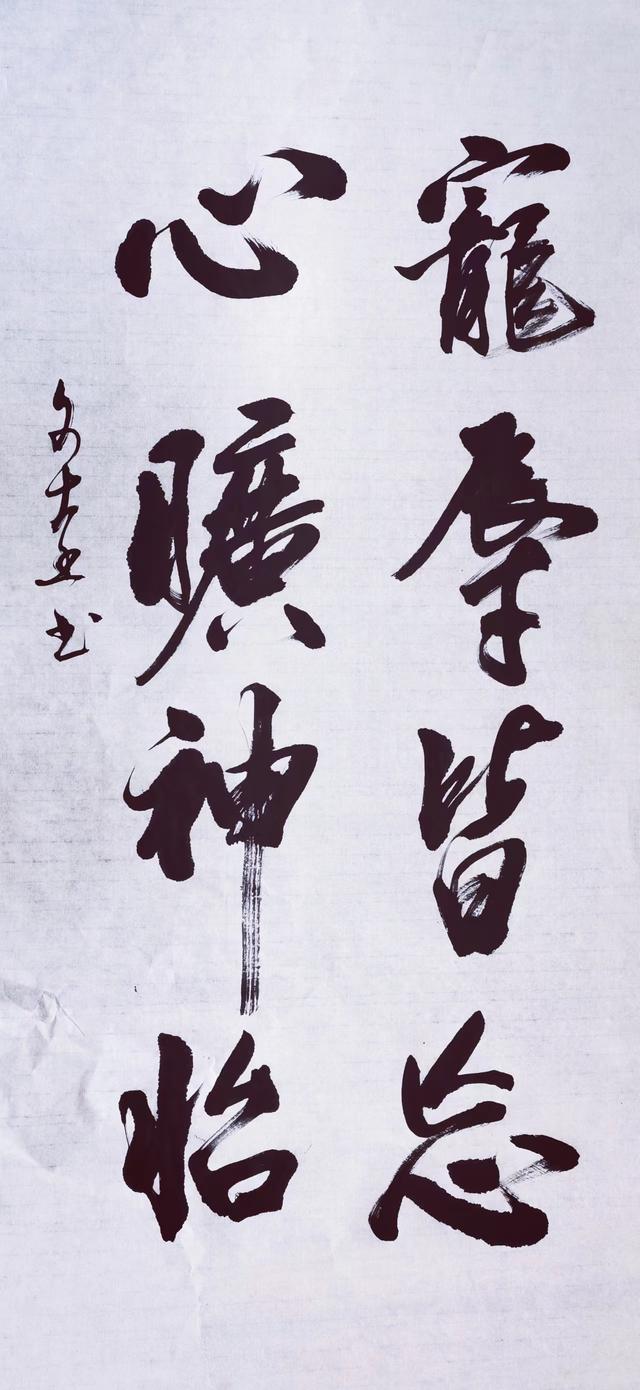 寵辱皆忘
心曠神怡
書